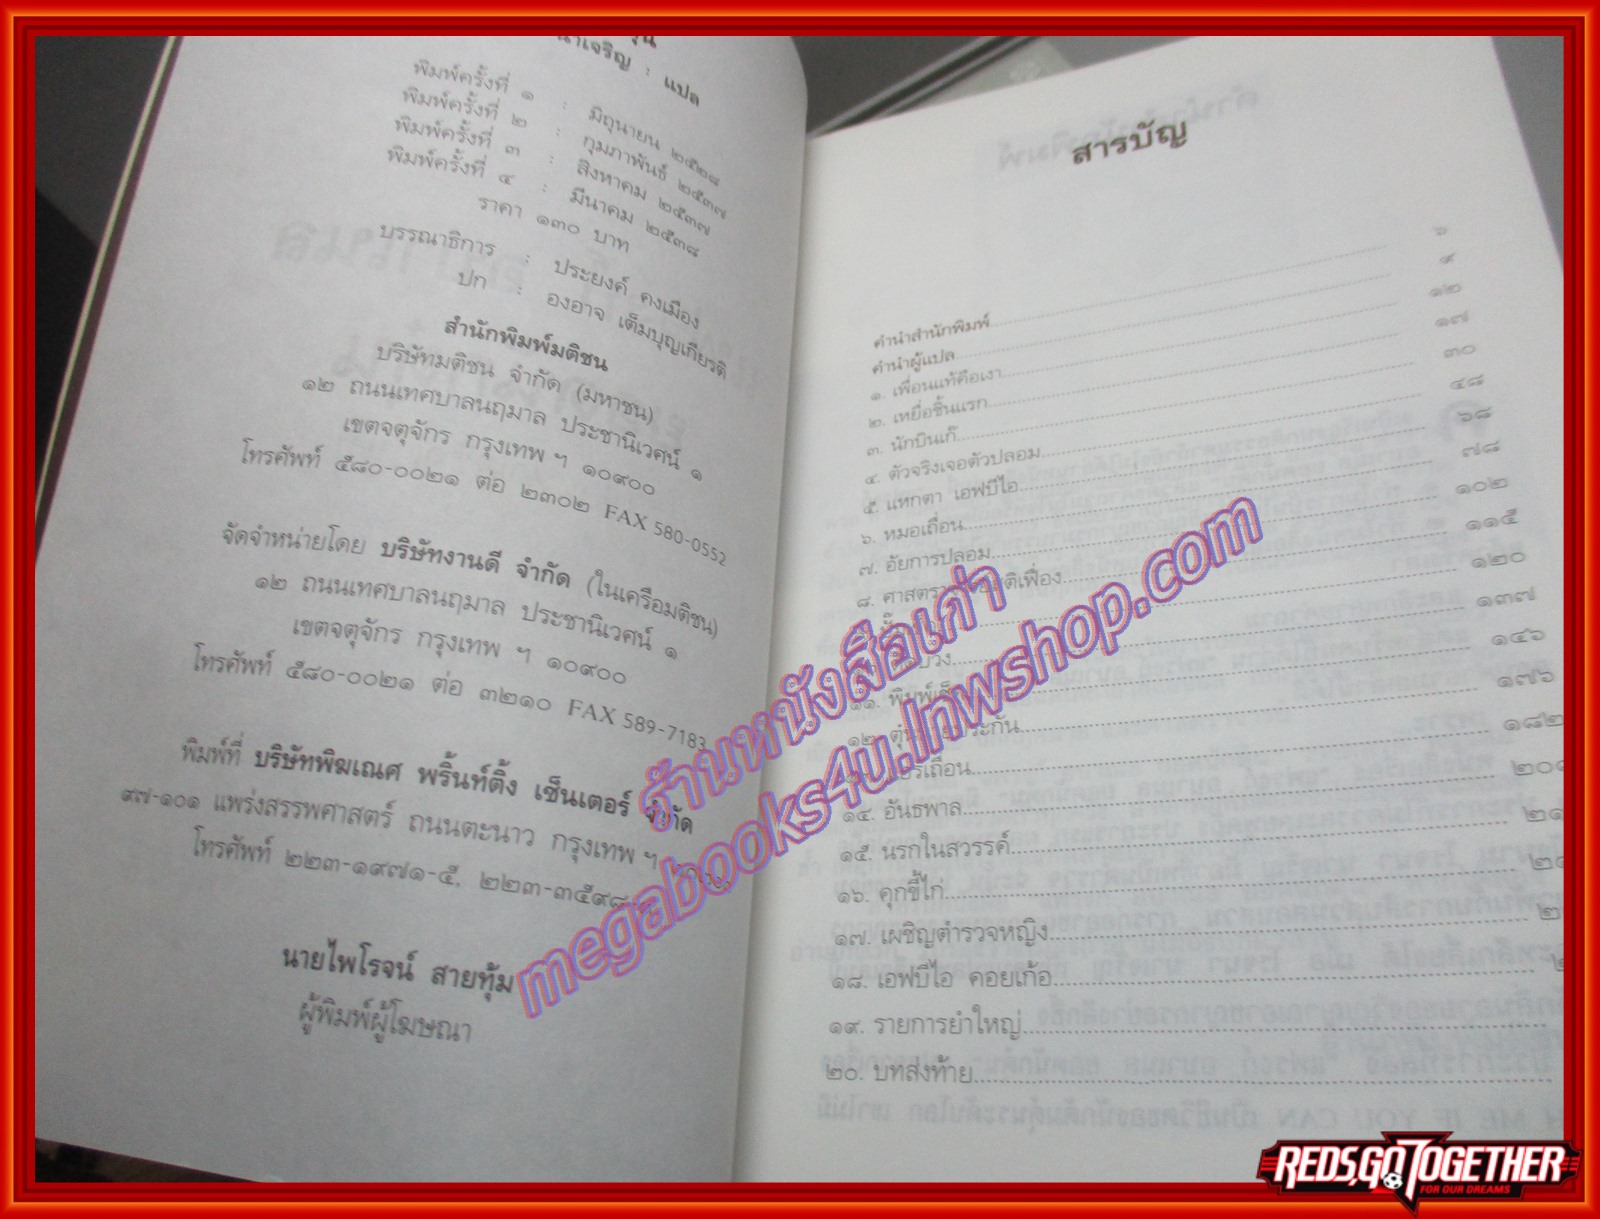 นาเจริญ : แปล
พิมพ์ครั้งที่ ๑ : มิถุนายน ๒๕๒๘
พิมพ์ครั้งที่ ๒ : กุมภาพันธ์ ๒๕๓๗
พิมพ์ครั้งที่ ๓ : สิงหาคม ๒๕๓๗
พิมพ์ครั้งที่ ๔ : มีนาคม ๒๕๓๘
ราคา ๑๓๐ บาท
บรรณาธิการ : ประยงค์ คงเมือง
ปก : องอาจ เต็มบุญเกียรติ
สำนักพิมพ์มติชน
บริษัทมติชน จำกัด (มหาชน)
๑๒ ถนนเทศบาลนฤมาล ประชานิเวศน์ ๑
เขตจตุจักร กรุงเทพ ฯ ๑๐๙๐๐
โทรศัพท์ ๕๘๐-๐๐๒๑ ต่อ ๒๓๐๒ FAX 580-0552
จัดจำหน่ายโดย บริษัทงานดี จำกัด (ในเครือมติชน)
๑๒ ถนนเทศบาลนฤมาล ประชานิเวศน์ ๑
เขตจตุจักร กรุงเทพ ฯ ๑๐๙๐๐
โทรศัพท์ ๕๘๐-๐๐๒๑ ต่อ ๓๒๑๐ FAX 589-7183
พิมพ์ที่ บริษัทพิฆเณศ พริ้นท์ติ้ง เซ็นเตอร์ จำกัด
๙๗-๑๐๑ แพร่งสรรพศาสตร์ ถนนตะนาว กรุงเทพ ฯ
โทรศัพท์ ๒๒๓-๑๙๗๑-๕, ๒๒๓-๓๕๙๘-๙
นายไพโรจน์ สายทุ้ม
ผู้พิมพ์ผู้โฆษณา
สารบัญ
คำนำสำนักพิมพ์ ๖
คำนำผู้แปล ๙
๑. เพื่อนแท้คือเงา ๑๒
๒. เหยื่อชิ้นแรก ๑๗
๓. นักบินเก๊ ๓๐
๔. ตัวจริงเจอตัวปลอม ๔๘
๕. แหกตา เอฟบีไอ ๖๘
๖. หมอเถื่อน ๗๘
๗. อัยการปลอม ๑๐๒
๘. ศาสตราจารย์สติเฟื่อง ๑๑๕
๑๒๐
๑๓๗
๑๑. พิมพ์เช็ค ๑๔๖
๑๒. ๑๗๖
๑๘๒
๑๔. อันธพาล ๒๐๑
๑๕. นรกในสวรรค์
๑๖. คุกขี้ไก่
๑๗. เผชิญตำรวจหญิง
๑๘. เอฟบีไอ คอยเก้อ
๑๙. รายการยำใหญ่
๒๐. บทส่งท้าย
ร้านหนังสือเก่า
megabooks4u.lnwshop.com
REDS,GO TOGETHER
FOR OUR DREAMS